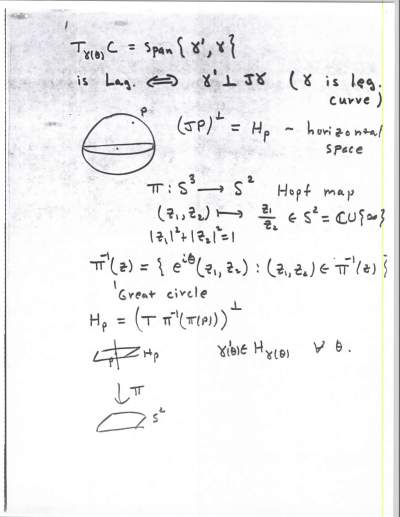 T_{γ(θ)} C = span{ γ', γ }
is Lag. ⟺ γ' ⊥ Jγ ( γ is leg. curve )
P
(JP)^⊥ = H_p ~ horizontal space
π : S³ → S² Hopf map
(z₁, z₂) ↦ z₁/z₂ ∈ S² = ℂ∪{∞}
|z₁|² + |z₂|² = 1
π⁻¹(z) = { e^{iθ}(z₁, z₂) : (z₁, z₂) ∈ π⁻¹(z) }
Great circle
H_p = (T π⁻¹(π(p)))^⊥
P H_p γ'(θ) ∈ H_{γ(θ)} ∀ θ.
↓ π
S²